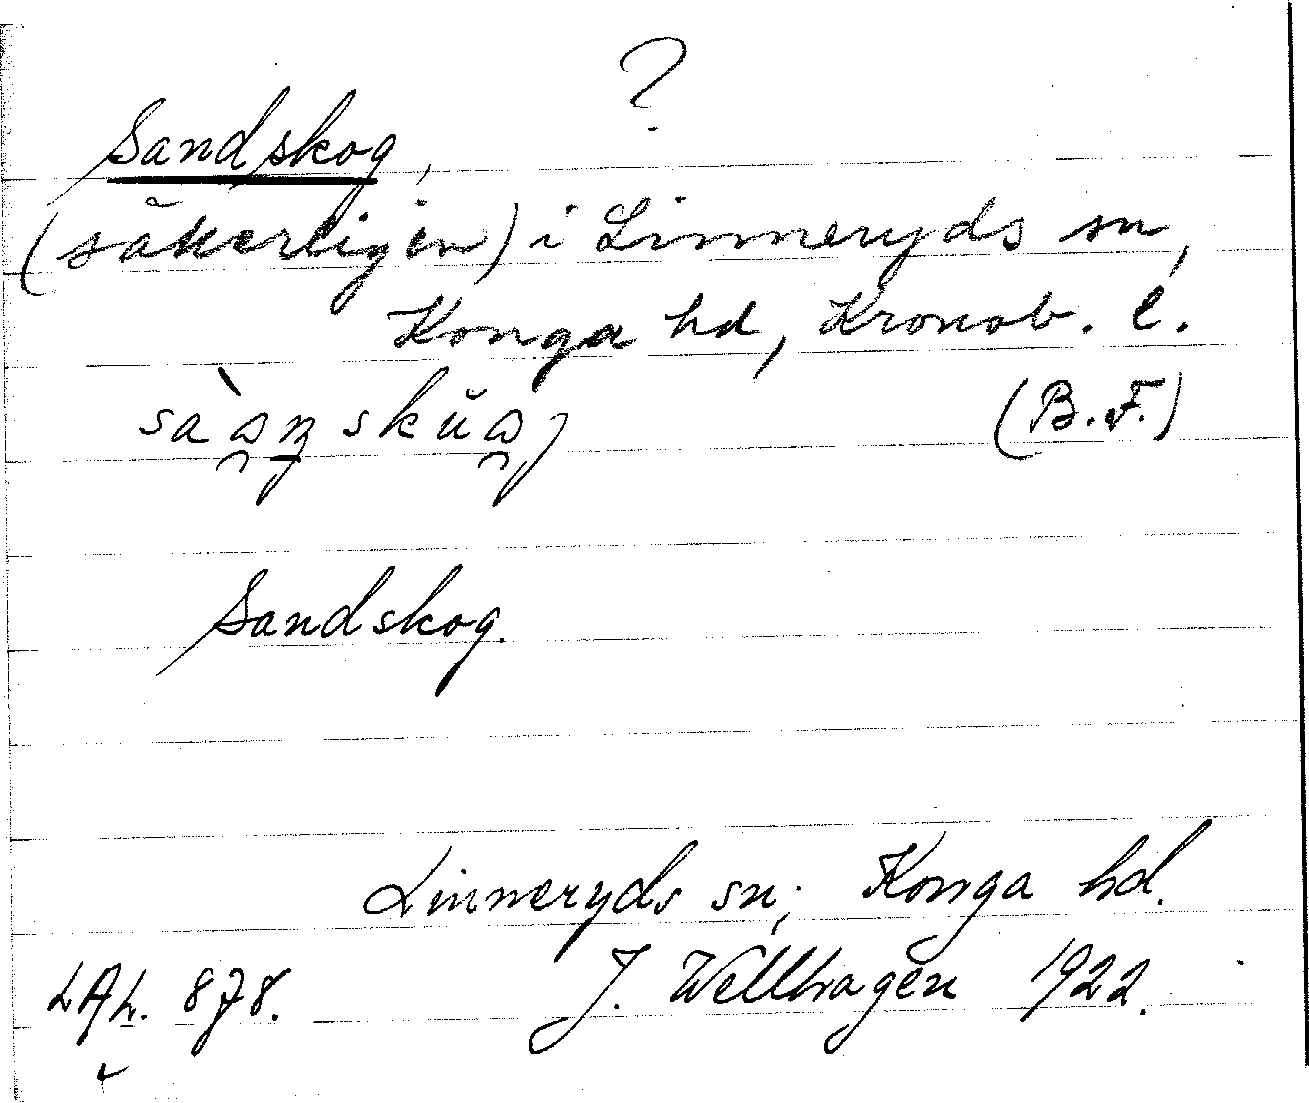 ?
Sandskog,
(säkerligen) i Linneryds sn,
Konga hd, Kronob. l.
(B.F.)
Sandskog.
Linneryds sn, Konga hd.
LAL. 878. J. Wellhagen 1922.